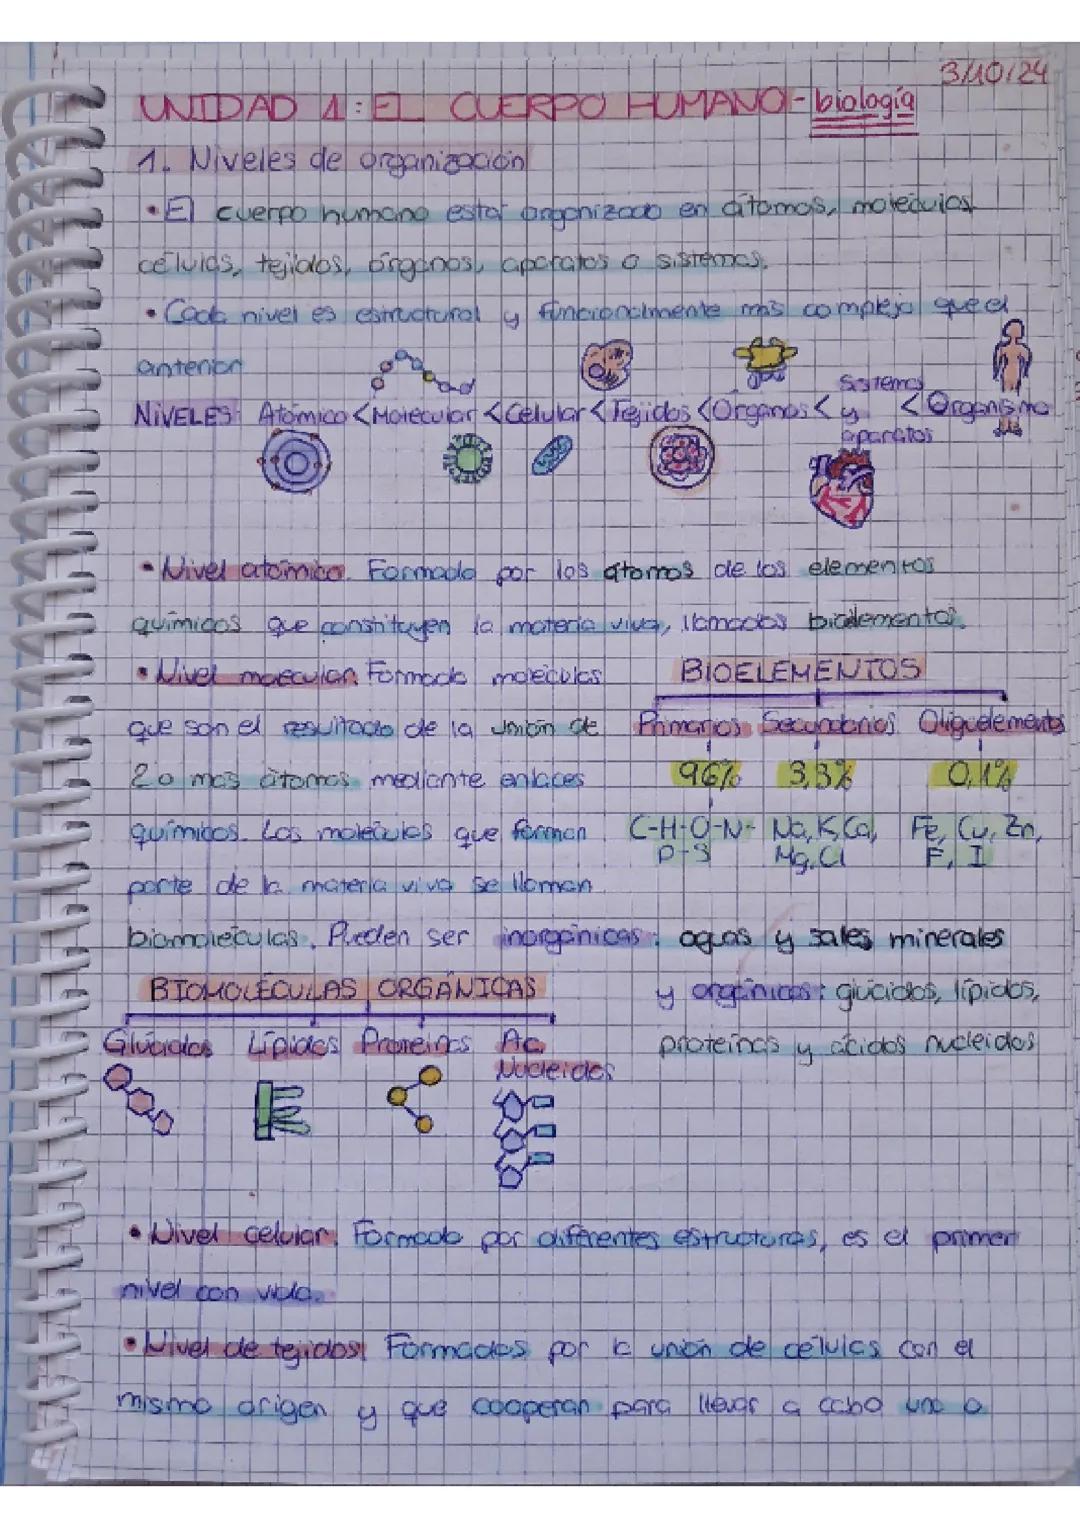 3/10/24
UNIDAD 1: EL CUERPO HUMANO - biología
1. Niveles de organización
• El cuerpo humano estar organizado en átomos, moléculas,
células, tejidos, órganos, aparatos o sistemas.
• Cada nivel es estructural y funcionalmente más complejo que el
anterior
NIVELES: Atómico < Molecular < Celular < Tejidos < Órganos < Sistemas y aparatos < Organismo
• Nivel atómico. Formado por los átomos de los elementos
químicos que constituyen la materia viva, llamados bioelementos.
• Nivel molecular. Formado moléculas
que son el resultado de la unión de
2 o más átomos mediante enlaces
químicos. Las moléculas que forman
parte de la materia viva se llaman
BIOELEMENTOS
Primarios Secundarios Oligoelementos
96% 3,3% 0,1%
C-H-O-N- Na, K, Ca, Fe, Cu, Zn,
P-S Mg, Cl F, I
biomoléculas. Pueden ser inorgánicas: aguas y sales minerales
y orgánicas: glúcidos, lípidos,
proteínas y ácidos nucleidos
BIOMOLÉCULAS ORGÁNICAS
Glúcidos Lípidos Proteínas Ac.
Nucleidos
• Nivel celular. Formado por diferentes estructuras, es el primer
nivel con vida.
• Nivel de tejidos. Formados por la unión de células con el
mismo origen y que cooperan para llevar a cabo una o